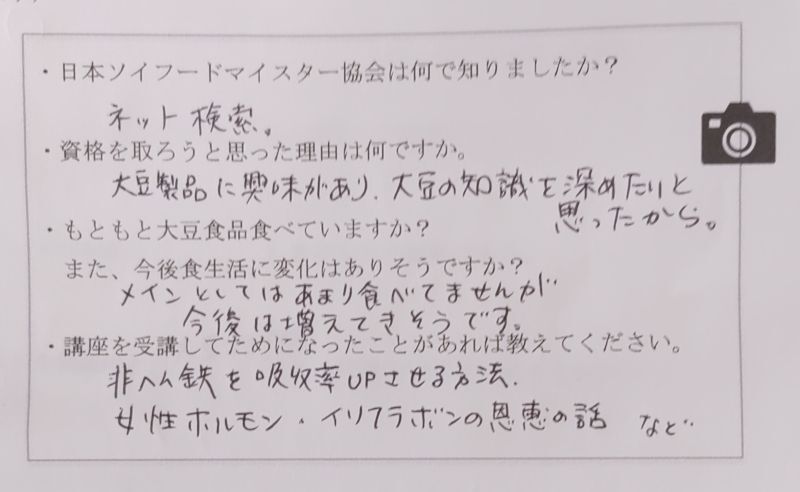 ・日本ソイフードマイスター協会は何で知りましたか？
ネット検索。
・資格を取ろうと思った理由は何ですか。
大豆製品に興味があり、大豆の知識を深めたいと
思ったから。
・もともと大豆食品食べていますか？
また、今後食生活に変化はありそうですか？
メインとしてはあまり食べてませんが
今後は増えてきそうです。
・講座を受講してためになったことがあれば教えてください。
非ヘム鉄を吸収率UPさせる方法、
女性ホルモン・イソフラボンの恩恵の話 など